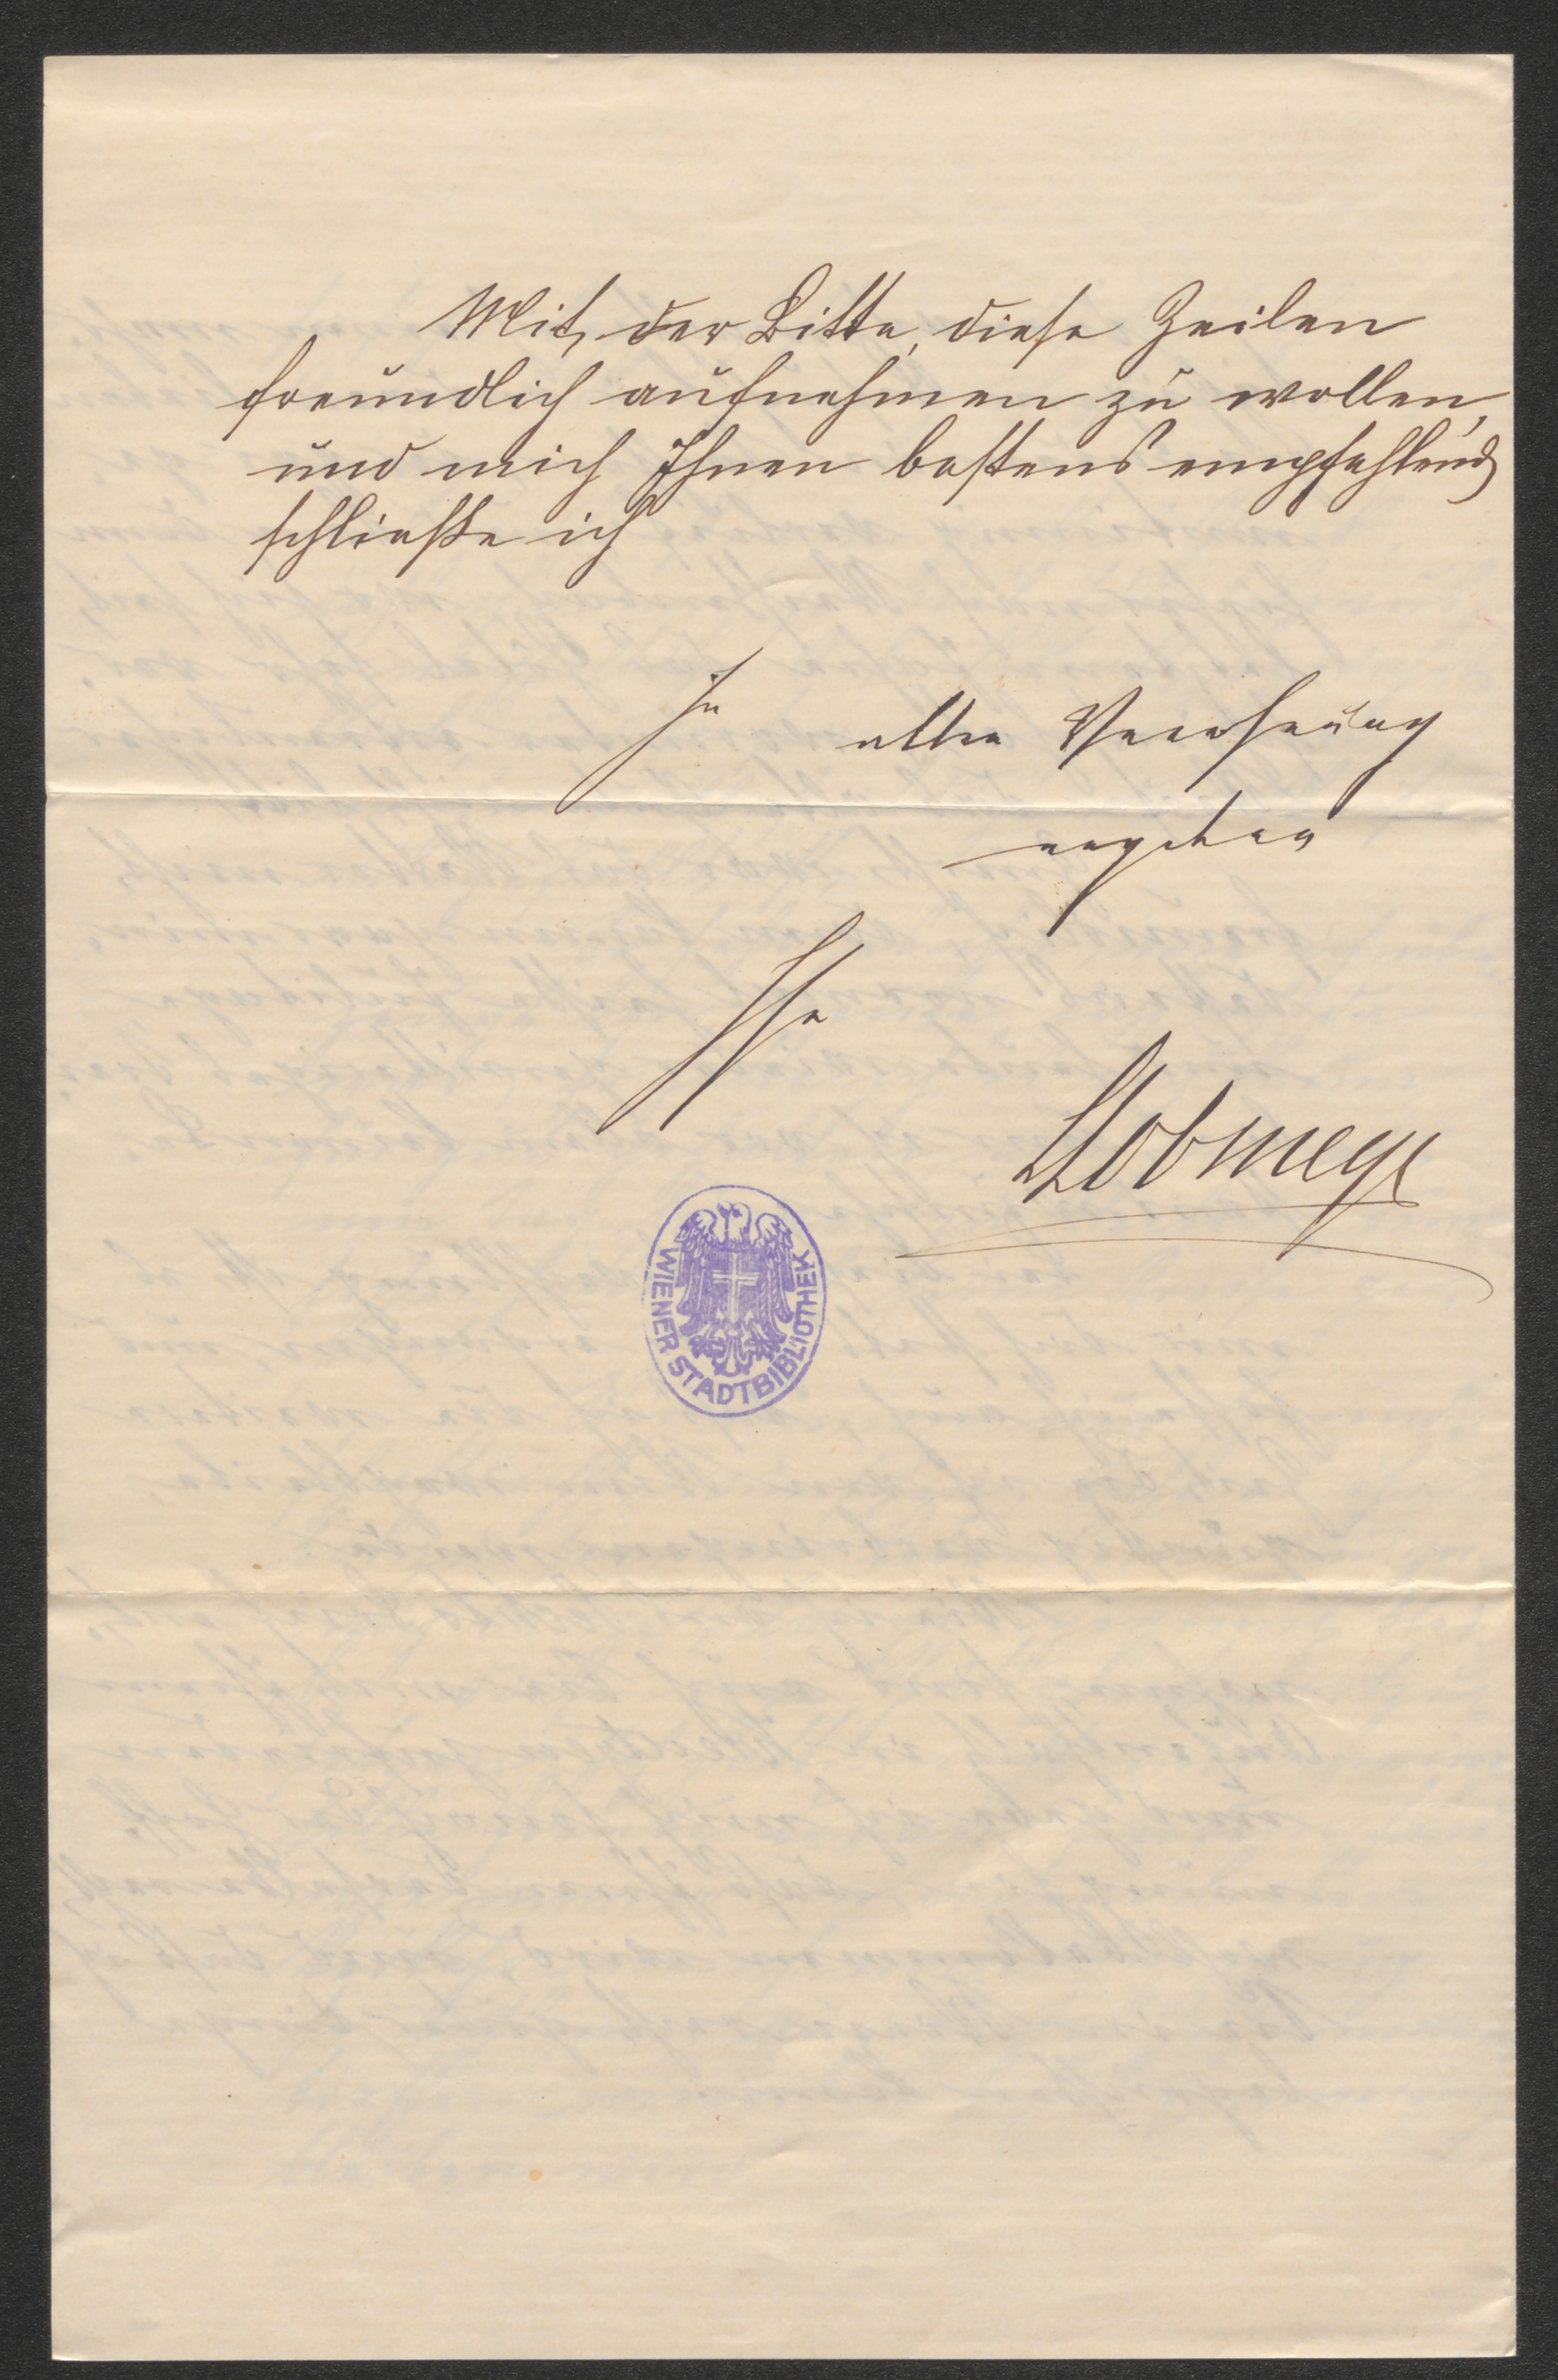 Mit der Bitte, diese Zeilen
freundlich aufnehmen zu wollen,
und mich Ihnen bestens empfehlend
schließe ich
in
aller Verehrung
ergeben
Ihr
Lobmeyr
WIENER STADTBIBLIOTHEK